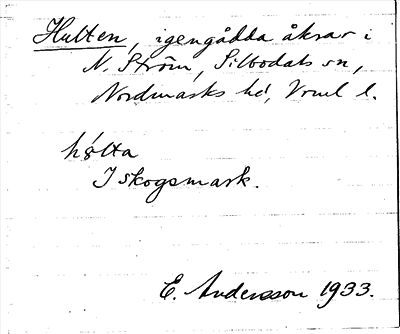 Hulten, igengådda åkrar i
N. Ström, Silbodals sn,
Nordmarks hd, Vrml l.
hø̀lta
I skogsmark.
E. Andersson 1933.